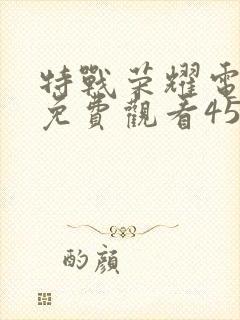 特戰荣耀電
免費觀看45
酌顔